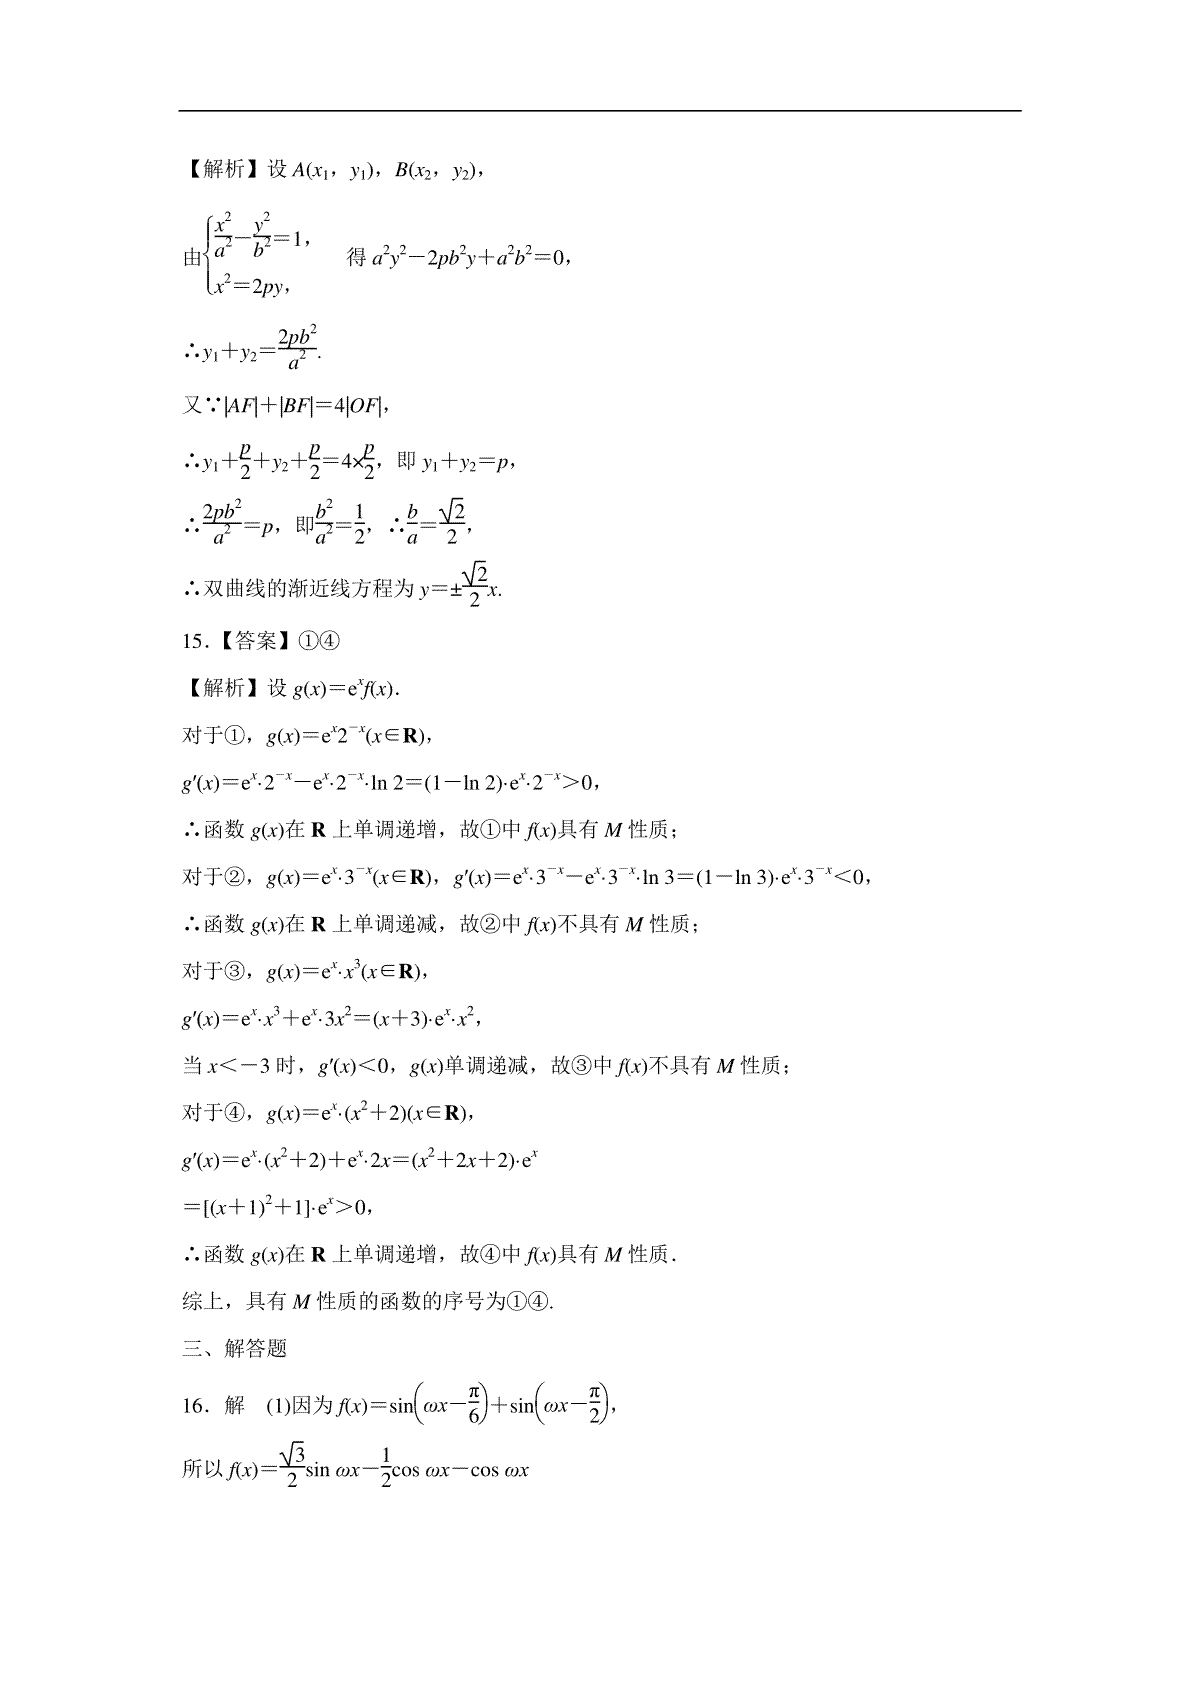 【解析】设 A(x₁，y₁)，B(x₂，y₂)，
由{x²/a²－y²/b²＝1，x²＝2py， 得 a²y²－2pb²y＋a²b²＝0，
∴y₁＋y₂＝2pb²/a².
又∵|AF|＋|BF|＝4|OF|，
∴y₁＋p/2＋y₂＋p/2＝4×p/2，即 y₁＋y₂＝p，
∴2pb²/a²＝p，即b²/a²＝1/2，∴b/a＝√2/2，
∴双曲线的渐近线方程为 y＝±√2/2x.
15．【答案】①④
【解析】设 g(x)＝eˣf(x)．
对于①，g(x)＝eˣ2⁻ˣ(x∈R)，
g′(x)＝eˣ·2⁻ˣ－eˣ·2⁻ˣ·ln 2＝(1－ln 2)·eˣ·2⁻ˣ＞0，
∴函数 g(x)在 R 上单调递增，故①中 f(x)具有 M 性质；
对于②，g(x)＝eˣ·3⁻ˣ(x∈R)，g′(x)＝eˣ·3⁻ˣ－eˣ·3⁻ˣ·ln 3＝(1－ln 3)·eˣ·3⁻ˣ＜0，
∴函数 g(x)在 R 上单调递减，故②中 f(x)不具有 M 性质；
对于③，g(x)＝eˣ·x³(x∈R)，
g′(x)＝eˣ·x³＋eˣ·3x²＝(x＋3)·eˣ·x²，
当 x＜－3 时，g′(x)＜0，g(x)单调递减，故③中 f(x)不具有 M 性质；
对于④，g(x)＝eˣ·(x²＋2)(x∈R)，
g′(x)＝eˣ·(x²＋2)＋eˣ·2x＝(x²＋2x＋2)·eˣ
＝[(x＋1)²＋1]·eˣ＞0，
∴函数 g(x)在 R 上单调递增，故④中 f(x)具有 M 性质．
综上，具有 M 性质的函数的序号为①④.
三、解答题
16．解　(1)因为 f(x)＝sin(ωx－π/6)＋sin(ωx－π/2)，
所以 f(x)＝√3/2sin ωx－1/2cos ωx－cos ωx